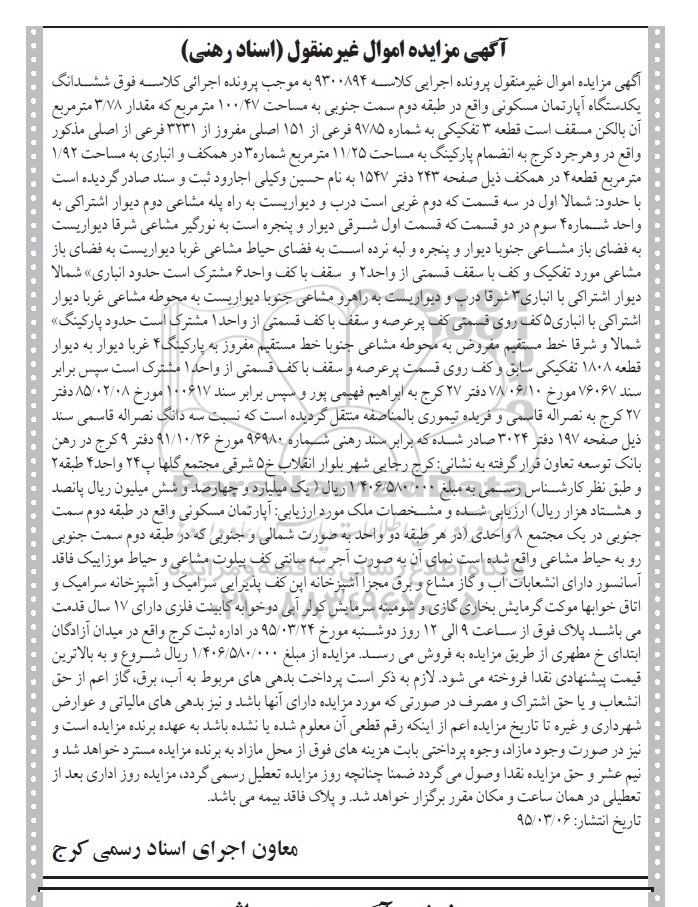 آگهی مزایده اموال غیرمنقول (اسناد رهنی)
آگهی مزایده اموال غیرمنقول پرونده اجرایی کلاسه ۹۳۰۰۸۹۴ به موجب پرونده اجرائی کلاسه فوق ششدانگ
یکدستگاه آپارتمان مسکونی واقع در طبقه دوم سمت جنوبی به مساحت ۱۰۰/۴۷ مترمربع که مقدار ۳/۷۸ مترمربع
آن بالکن مسقف است قطعه ۳ تفکیکی به شماره ۹۷۸۵ فرعی از ۱۵۱ اصلی مفروز از ۳۲۳۱ فرعی از اصلی مذکور
واقع در وهرجرد کرج به انضمام پارکینگ به مساحت ۱۱/۲۵ مترمربع شماره۳ در همکف و انباری به مساحت ۱/۹۲
مترمربع قطعه۴ در همکف ذیل صفحه ۲۴۳ دفتر ۱۵۴۷ به نام حسین وکیلی اجارود ثبت و سند صادر گردیده است
با حدود: شمالا اول در سه قسمت که دوم غربی است درب و دیواریست به راه پله مشاعی دوم دیوار اشتراکی به
واحد شماره۴ سوم در دو قسمت که قسمت اول شرقی دیوار و پنجره است به نورگیر مشاعی شرقا دیواریست
به فضای باز مشاعی جنوبا دیوار و پنجره و لبه نرده است به فضای حیاط مشاعی غربا دیواریست به فضای باز
مشاعی مورد تفکیک و کف با سقف قسمتی از واحد۲ و سقف با کف واحد۶ مشترک است حدود انباری» شمالا
دیوار اشتراکی با انباری۳ شرقا درب و دیواریست به راهرو مشاعی جنوبا دیواریست به محوطه مشاعی غربا دیوار
اشتراکی با انباری۵ کف روی قسمتی کف پرعرصه و سقف با کف قسمتی از واحد۱ مشترک است حدود پارکینگ»
شمالا و شرقا خط مستقیم مفروض به محوطه مشاعی جنوبا خط مستقیم مفروز به پارکینگ۴ غربا دیوار به دیوار
قطعه ۱۸۰۸ تفکیکی سابق و کف روی قسمت پرعرصه و سقف با کف قسمتی از واحد۱ مشترک است سپس برابر
سند ۷۶۰۶۷ مورخ ۷۸/۰۶/۱۰ دفتر ۲۷ کرج به ابراهیم فهیمی پور و سپس برابر سند ۱۰۰۶۱۷ مورخ ۸۵/۰۲/۰۸ دفتر
۲۷ کرج به نصراله قاسمی و فریده تیموری بالمناصفه منتقل گردیده است که نسبت سه دانگ نصراله قاسمی سند
ذیل صفحه ۱۹۷ دفتر ۳۰۲۴ صادر شده که برابر سند رهنی شماره ۹۶۹۸۰ مورخ ۹۱/۱۰/۲۶ دفتر ۹ کرج در رهن
بانک توسعه تعاون قرار گرفته به نشانی: کرج رجایی شهر بلوار انقلاب خ۵ شرقی مجتمع گلها پ۲۴ واحد۴ طبقه۲
و طبق نظر کارشناس رسمی به مبلغ ۱/۴۰۶/۵۸۰/۰۰۰ ریال ( یک میلیارد و چهارصد و شش میلیون ریال پانصد
و هشتاد هزار ریال) ارزیابی شده و مشخصات ملک مورد ارزیابی: آپارتمان مسکونی واقع در طبقه دوم سمت
جنوبی در یک مجتمع ۸ واحدی (در هر طبقه دو واحد به صورت شمالی و جنوبی که در طبقه دوم سمت جنوبی
رو به حیاط مشاعی واقع شده است نمای آن به صورت آجر سه سانتی کف پیلوت مشاعی و حیاط موزاییک فاقد
آسانسور دارای انشعابات آب و گاز مشاع و برق مجزا آشپزخانه اپن کف پذیرایی سرامیک و آشپزخانه سرامیک و
اتاق خوابها موکت گرمایش بخاری گازی و شومینه سرمایش کولر آبی دوخوابه کابینت فلزی دارای ۱۷ سال قدمت
می باشد پلاک فوق از ساعت ۹ الی ۱۲ روز دوشنبه مورخ ۹۵/۰۳/۲۴ در اداره ثبت کرج واقع در میدان آزادگان
ابتدای خ مطهری از طریق مزایده به فروش می رسد. مزایده از مبلغ ۱/۴۰۶/۵۸۰/۰۰۰ ریال شروع و به بالاترین
قیمت پیشنهادی نقدا فروخته می شود. لازم به ذکر است پرداخت بدهی های مربوط به آب، برق، گاز اعم از حق
انشعاب و یا حق اشتراک و مصرف در صورتی که مورد مزایده دارای آنها باشد و نیز بدهی های مالیاتی و عوارض
شهرداری و غیره تا تاریخ مزایده اعم از اینکه رقم قطعی آن معلوم شده یا نشده باشد به عهده برنده مزایده است و
نیز در صورت وجود مازاد، وجوه پرداختی بابت هزینه های فوق از محل مازاد به برنده مزایده مسترد خواهد شد و
نیم عشر و حق مزایده نقدا وصول می گردد ضمنا چنانچه روز مزایده تعطیل رسمی گردد، مزایده روز اداری بعد از
تعطیلی در همان ساعت و مکان مقرر برگزار خواهد شد. و پلاک فاقد بیمه می باشد.
تاریخ انتشار: ۹۵/۰۳/۰۶
معاون اجرای اسناد رسمی کرج